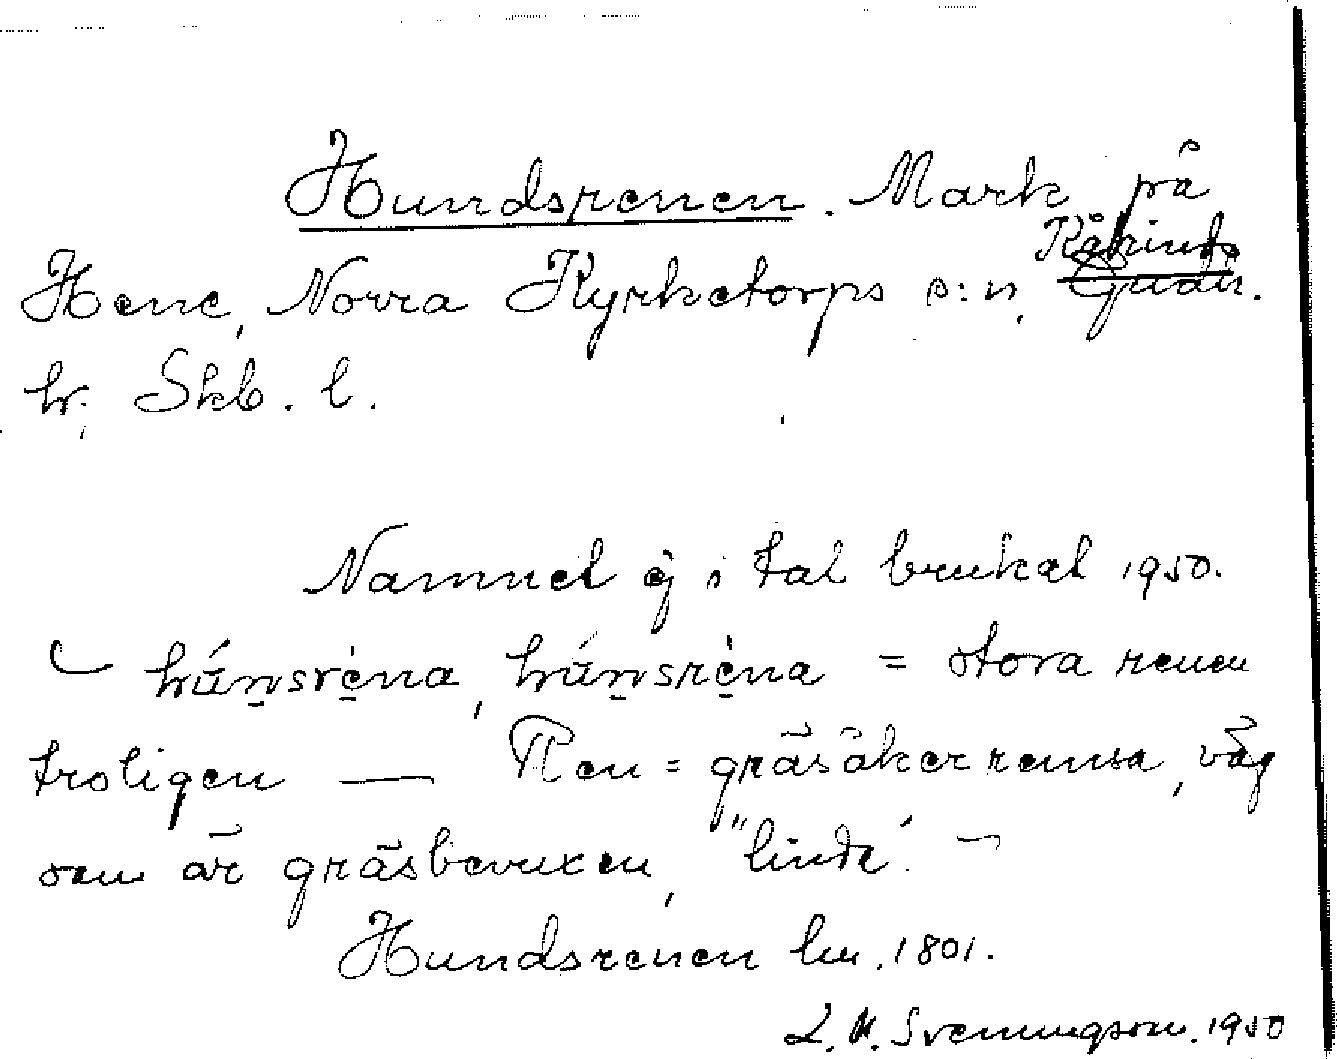 Hundsrenen. Mark på
Hene, Norra Kyrketorps s:n, Kåkinds
hr, Skb. l.
Namnet ej i tal brukat 1950.
húṇsrèna, húṇsrèna = stora renen
troligen — Ren = gräsåkerremsa, väg
som är gräsbevuxen, "linda".
Hundsrenen lm. 1801.
1950